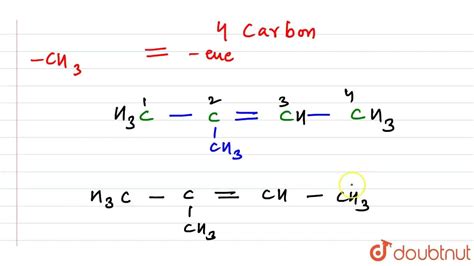 4 Carbon
-CH3 = -ene
1 2 3 4
H3C - C = CH - CH3
CH3
H3C - C = CH - CH3
CH3
doubtnut